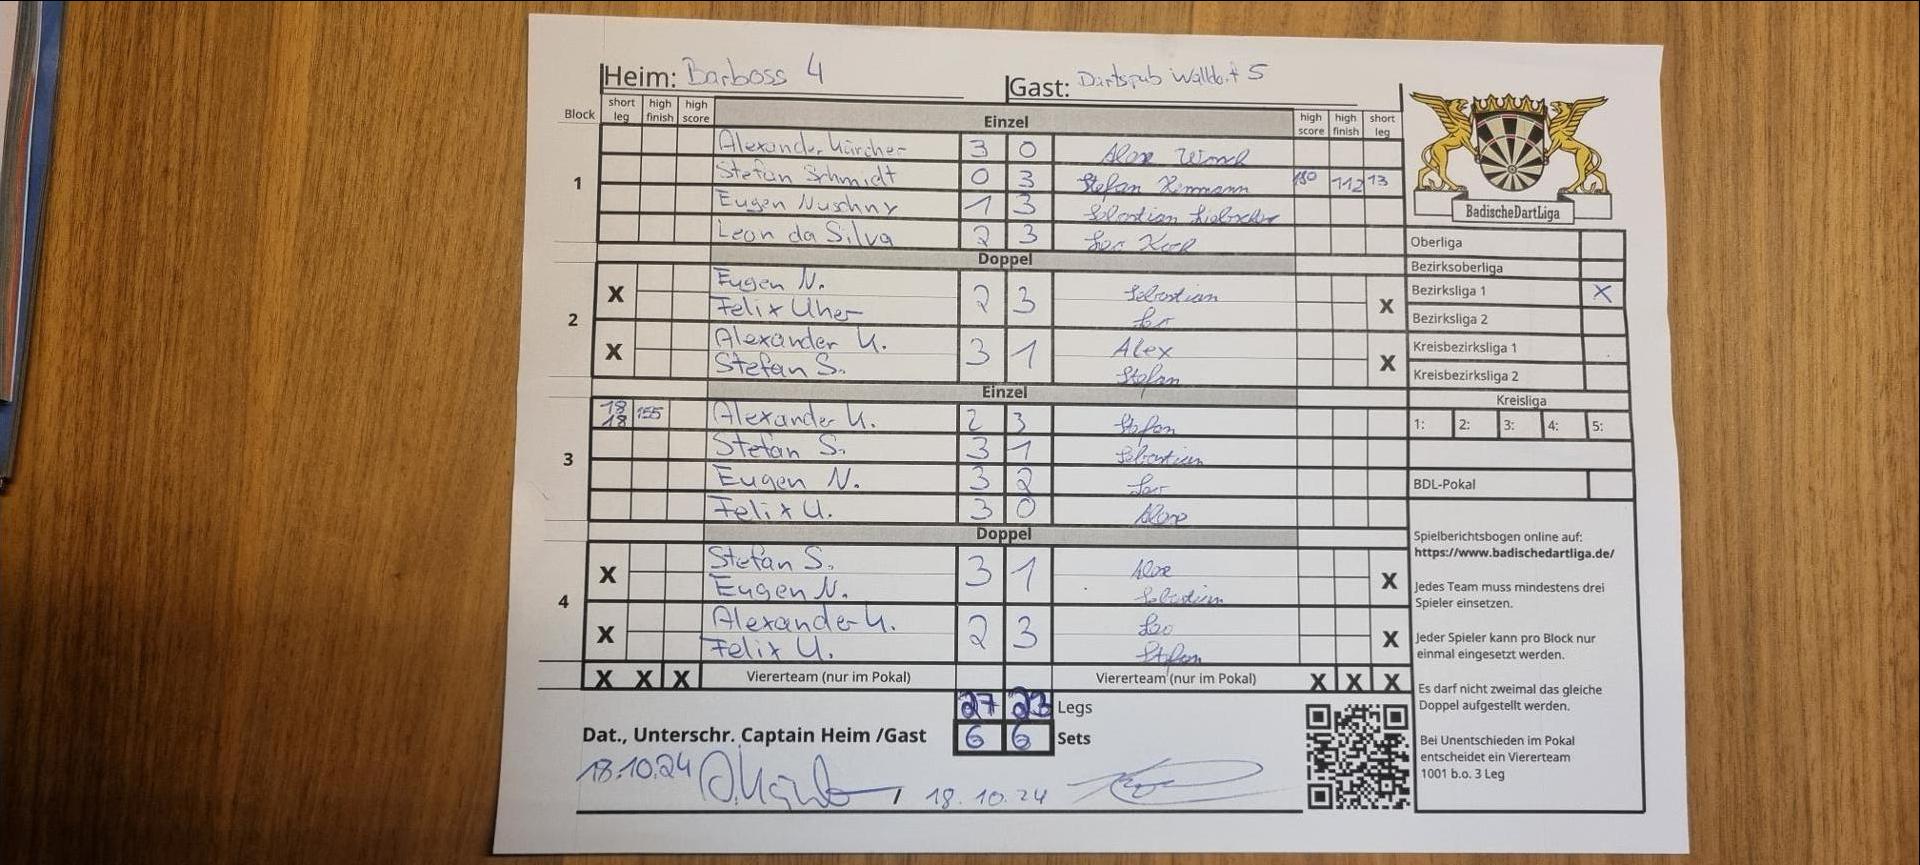 Heim: Barboss 4 Gast: Dartspub Walldorf 5
Block short leg high finish high score Einzel high score high finish short leg
1
Alexander Kärcher 3 0 Alex
Stefan Schmidt 0 3 Stefan Hermann 180 112 13
Eugen Nuschnv 1 3 Sebastian
Leon da Silva 2 3 Leo Koch
Doppel
2
X Eugen N. 2 3 Sebastian X
Felix Uher Leo
X Alexander K. 3 1 Alex X
Stefan S. Stefan
Einzel
3
18 18 155 Alexander K. 2 3 Stefan
Stefan S. 3 1 Sebastian
Eugen N. 3 2 Leo
Felix U. 3 0 Alex
Doppel
4
X Stefan S. 3 1 Alex X
Eugen N. Sebastian
X Alexander K. 2 3 Leo X
Felix U. Stefan
X X X Viererteam (nur im Pokal) Viererteam (nur im Pokal) X X X
27 23 Legs
Dat., Unterschr. Captain Heim /Gast 6 6 Sets
18.10.24 / 18.10.24
BadischeDartLiga
Oberliga
Bezirksoberliga
Bezirksliga 1 X
Bezirksliga 2
Kreisbezirksliga 1
Kreisbezirksliga 2
Kreisliga
1: 2: 3: 4: 5:
BDL-Pokal
Spielberichtsbogen online auf:
https://www.badischedartliga.de/
Jedes Team muss mindestens drei
Spieler einsetzen.
Jeder Spieler kann pro Block nur
einmal eingesetzt werden.
Es darf nicht zweimal das gleiche
Doppel aufgestellt werden.
Bei Unentschieden im Pokal
entscheidet ein Viererteam
1001 b.o. 3 Leg